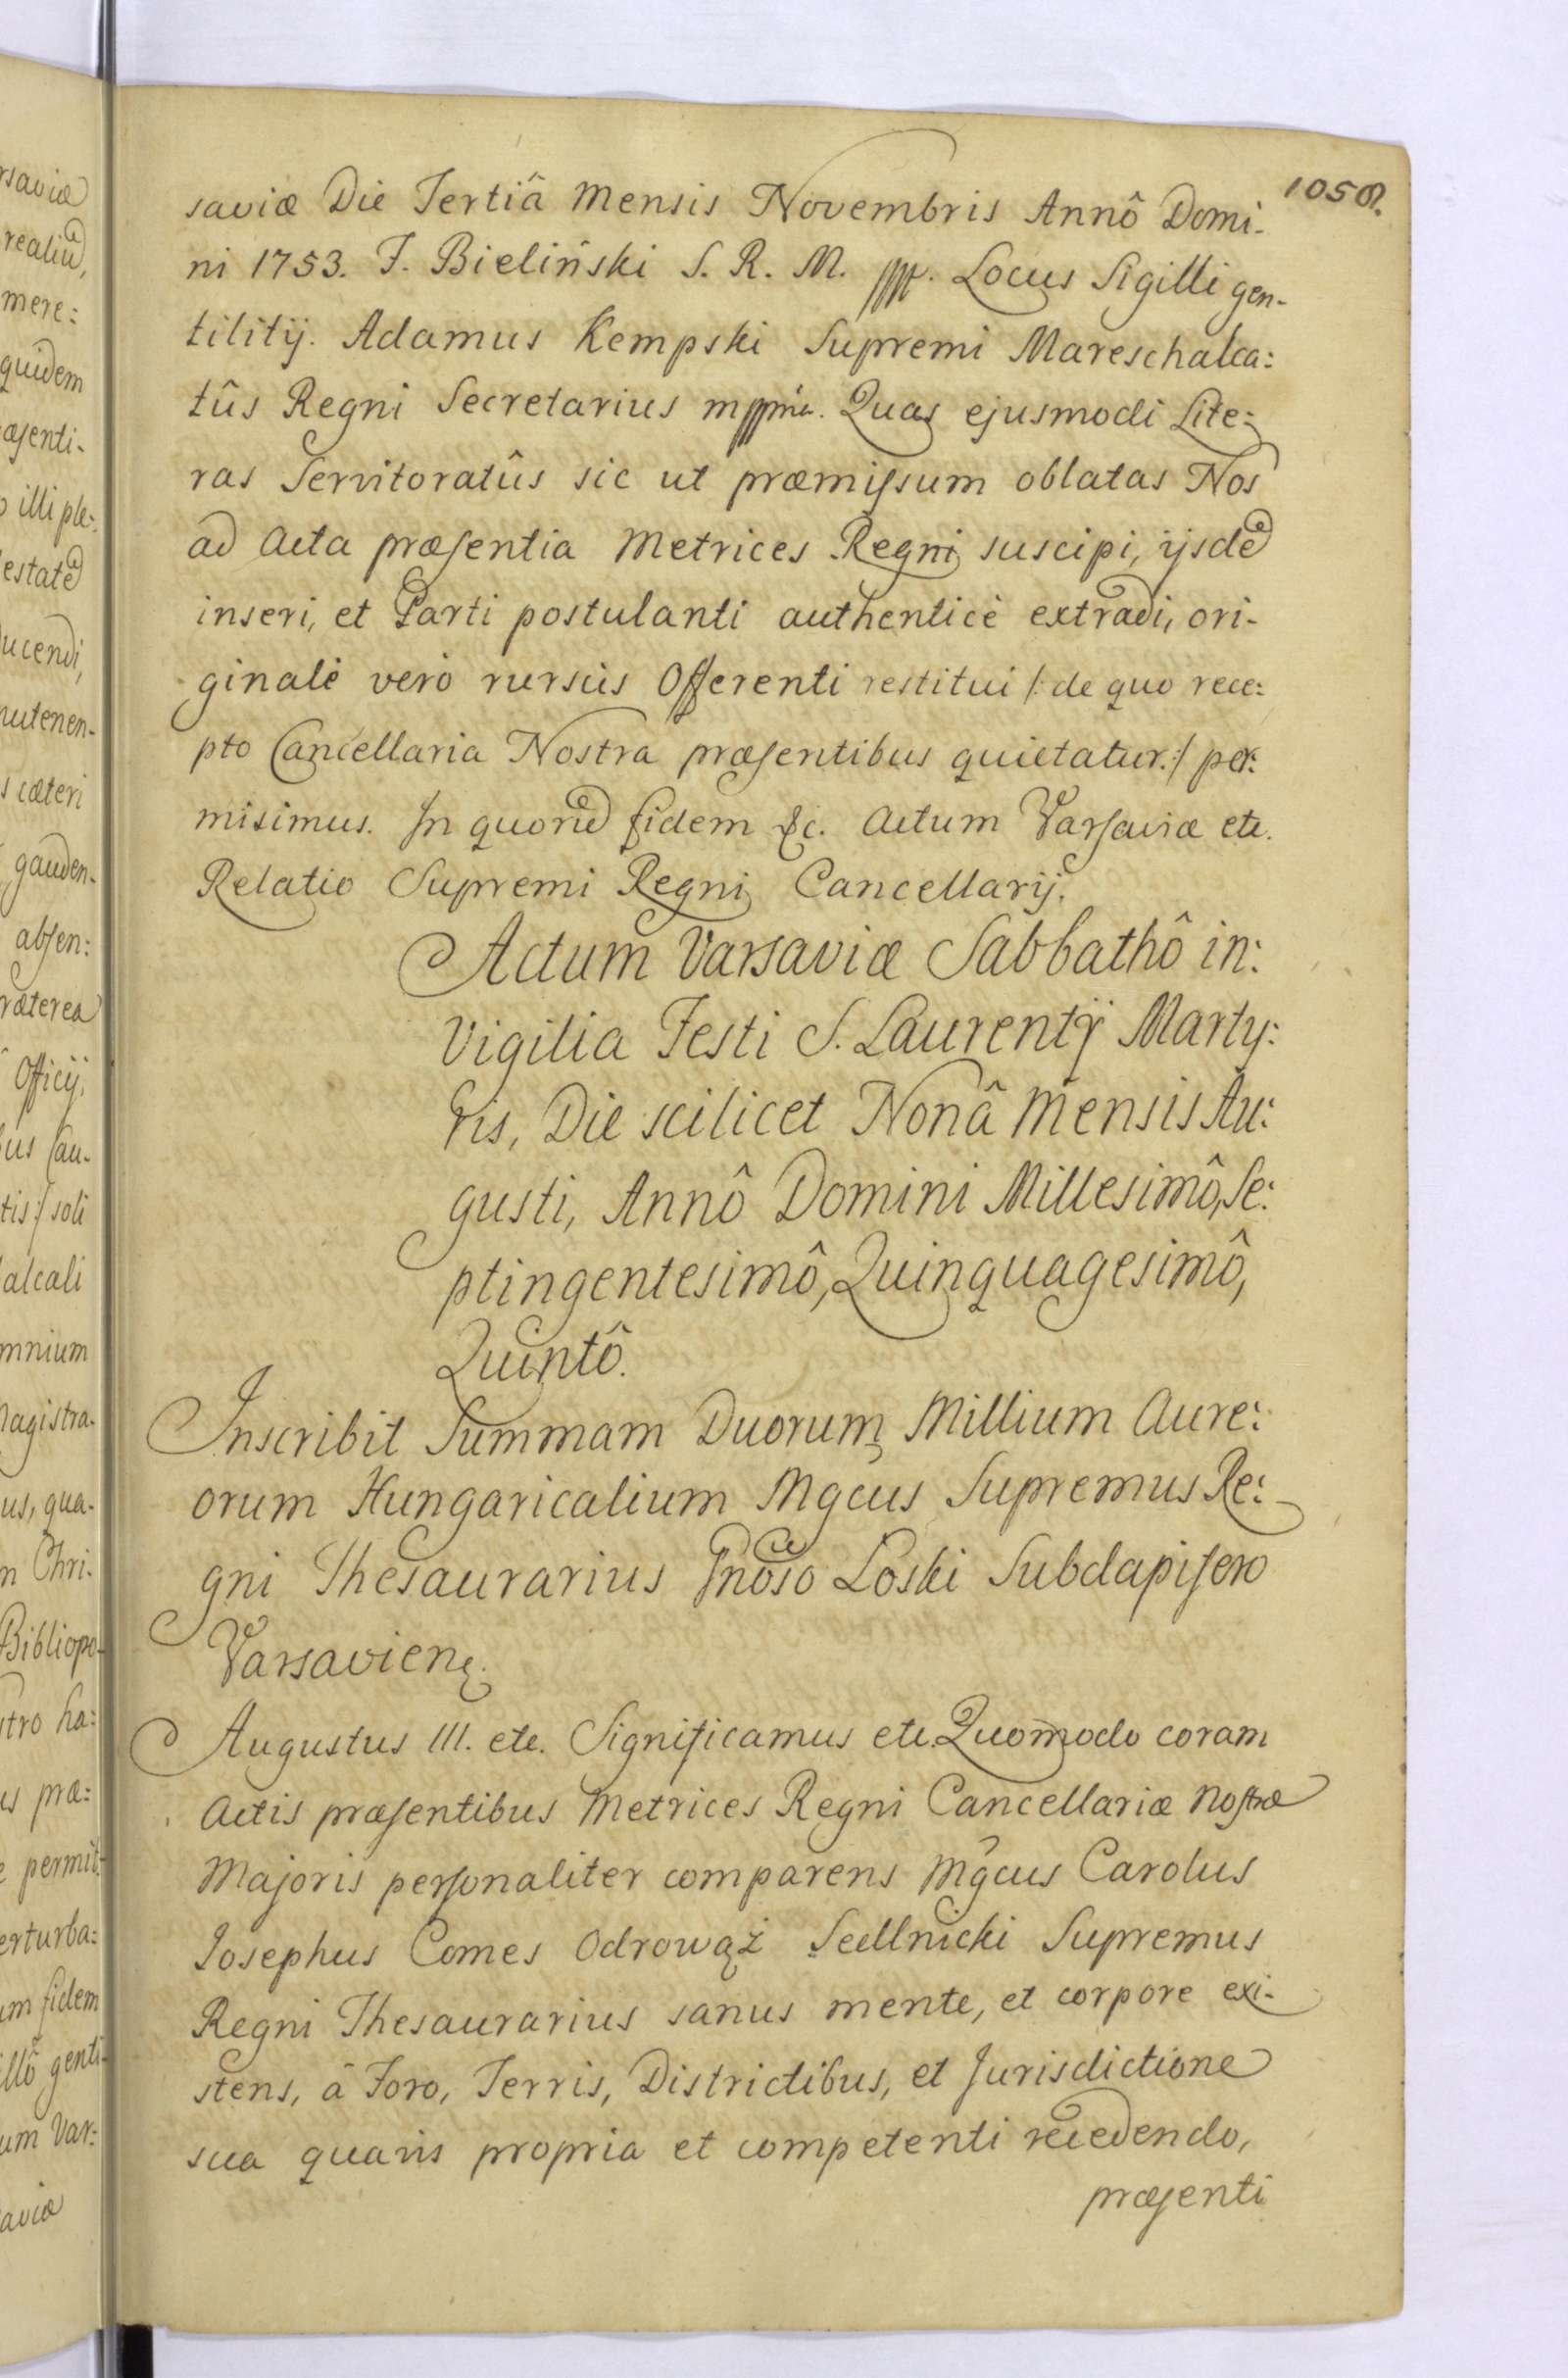 1058.
saviæ Die Tertiâ Mensis Novembris Annô Domi-
ni 1753. F. Bieliński S. R. M. mpp. Locus Sigilli gen-
tilitij. Adamus Kempski Supremi Mareschalca:
tûs Regni Secretarius mppria. Quas ejusmodi Lite:
ras Servitoratûs sic ut præmissum oblatas Nos
ad Acta præsentia Metrices Regni suscipi, ijsdē
inseri, et Parti postulanti authenticè extradi, ori-
ginale verò rursùs Offerenti restitui /: de quo rece:
pto Cancellaria Nostra præsentibus quietatur :/ per:
misimus. In quorū fidem &c. Actum Varsaviæ etc.
Relatio Supremi Regni Cancellarij.
Actum Varsaviæ Sabbathô in:
Vigilia Festi S. Laurentij Marty:
ris, Die scilicet Nonâ Mensis Au:
gusti, Annô Domini Millesimô, Se:
ptingentesimô, Quinquagesimô,
Quintô.
Inscribit Summam Duorum Millium Aure:
orum Hungaricalium Mgcus Supremus Re:
gni Thesaurarius Gnoso Łoski Subdapifero
Varsavien.
Augustus III. etc. Significamus etc. Quomodo coram
Actis præsentibus Metrices Regni Cancellariæ Nostræ
Majoris personaliter comparens Mgcus Carolus
Josephus Comes Odrowąż Sedlnicki Supremus
Regni Thesaurarius sanus mente, et corpore exi-
stens, â Foro, Terris, Districtibus, et Jurisdictione
sua quavis propria et competenti recedendo,
præsenti
rsaviæ
realiū,
mere:
quidem
æsenti-
illi ple:
estatē
ucendi,
nutenen-
s cæteri
gauden-
absen:
ræterea
Officij,
us Cau-
tis :/ soli
alcali
mnium
agistra-
us, qua-
n Chri-
Bibliopo-
stro ha:
us præ:
e permit-
erturba:
um fidem
illô genti-
um Var:
aviæ